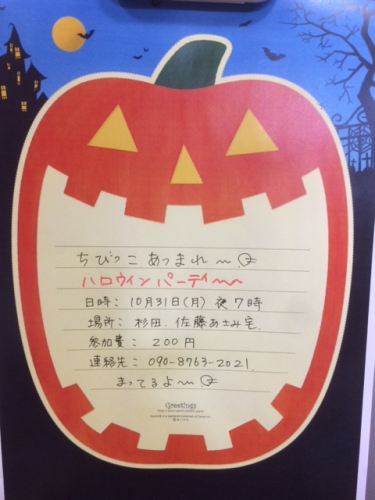 ちびっこ あつまれ〜
ハロウィンパーティ〜〜
日時: 10月31日(月) 夜7時
場所: 杉田、佐藤あさみ宅
参加費: 200円
連絡先: 090-8763-2021
まってるよ〜
Greetings